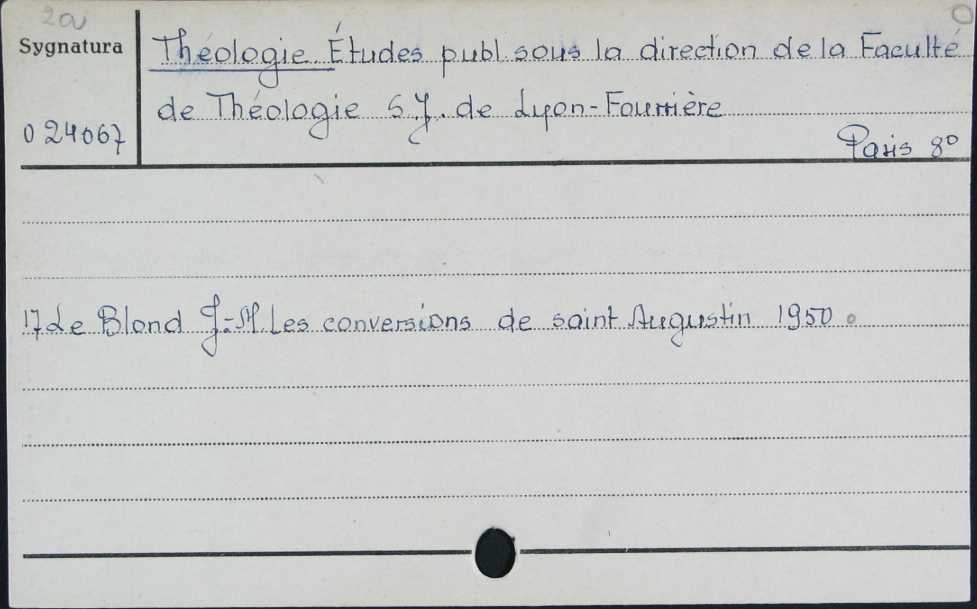 2a
O
Sygnatura
Théologie. Études publ. sous la direction de la Faculté
de Théologie S.J. de Lyon-Fourrière
0 24067
Paris 8°
17 Le Blond J.-M. Les conversions de saint Augustin 1950